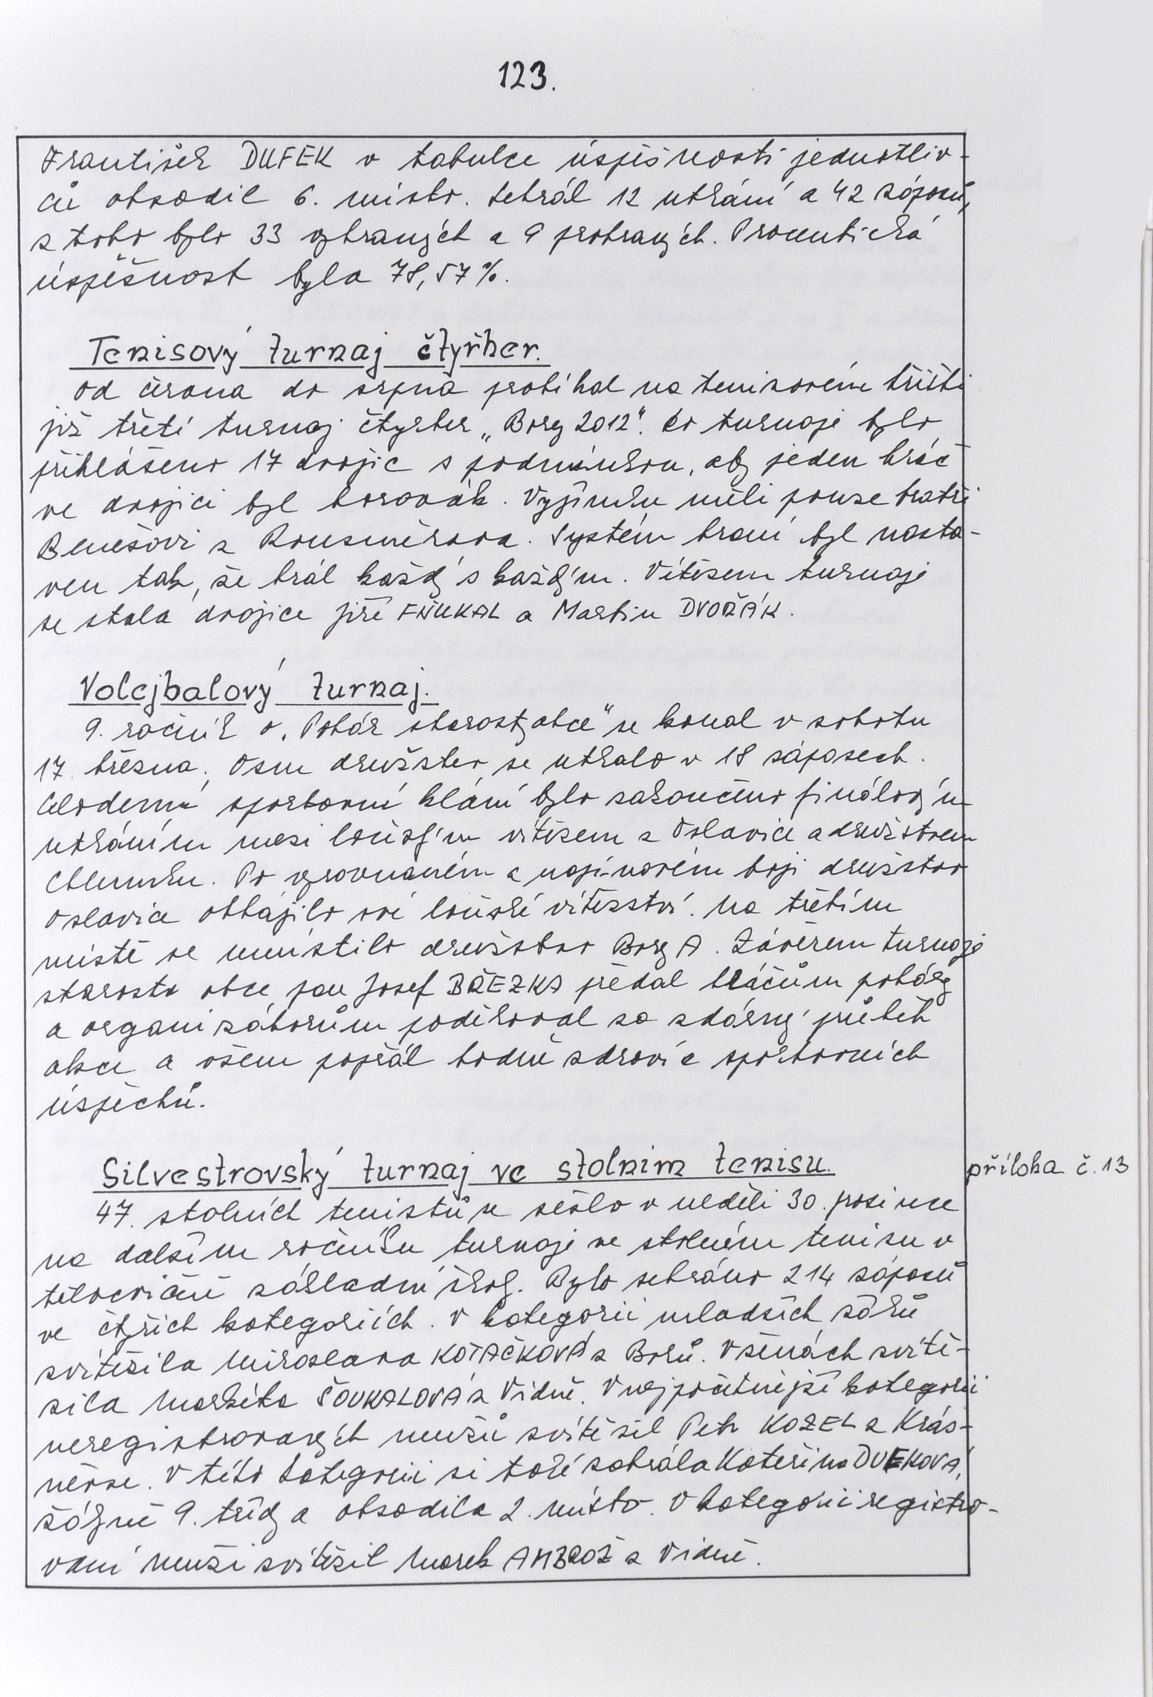 123.
František DUFEK v tabulce úspěšnosti jednotliv-
ců obsadil 6. místo. Sehrál 12 utkání a 42 zápasů,
z toho bylo 33 vyhraných a 9 prohraných. Procentická
úspěšnost byla 78,57%.
Tenisový turnaj čtyřher.
Od června do srpna probíhal na tenisovém hřišti
již třetí turnaj čtyřher „Bory 2012". Do turnaje bylo
přihlášeno 17 dvojic s podmínkou, aby jeden hráč
ve dvojici byl borovák. Vyjímku měli pouze bratři
Benešovi z Rousměrova. Systém hraní byl nasta-
ven tak, že hrál každý s každým. Vítězem turnaje
se stala dvojice Jiří a Martin DVOŘÁK.
Volejbalový turnaj.
9. ročník o „Pohár starosty obce" se konal v sobotu
17. března. Osm družstev se utkalo v 18 zápasech.
Celodenní sportovní klání bylo zakončeno finálovým
utkáním mezi loňským vítězem z Oslavice a družstvem
Chlumku. Po vyrovnaném a napínavém boji družstvo
Oslavice obhájilo své loňské vítězství. Na třetím
místě se umístilo družstvo Bory A. Závěrem turnaje
starosta obce pan Josef BŘEZKA předal hráčům poháry
a organizátorům poděkoval za zdárný průběh
akce a všem popřál hodně zdraví a sportovních
úspěchů.
Silvestrovský turnaj ve stolním tenisu.
příloha č. 13
47. stolních tenistů se sešlo v neděli 30. prosince
na dalším ročníku turnaje ve stolním tenisu v
tělocvičně základní školy. Bylo sehráno 214 zápasů
ve čtyřech kategoriích. V kategorii mladších žáků
svítězila Miroslava KOTAČKOVÁ z Borů. V ženách svítě-
zila Markéta ŠOUKALOVÁ z Vídně. V nejpočetnější kategorii
neregistrovaných mužů svítězil Petr KOZEL z Krás-
něvse. V této kategorii si také zahrála Kateřina DUFKOVÁ,
žákyně 9. třídy a obsadila 2. místo. V kategorii registro-
vaní muži svítězil Marek AMBROŽ z Vídně.